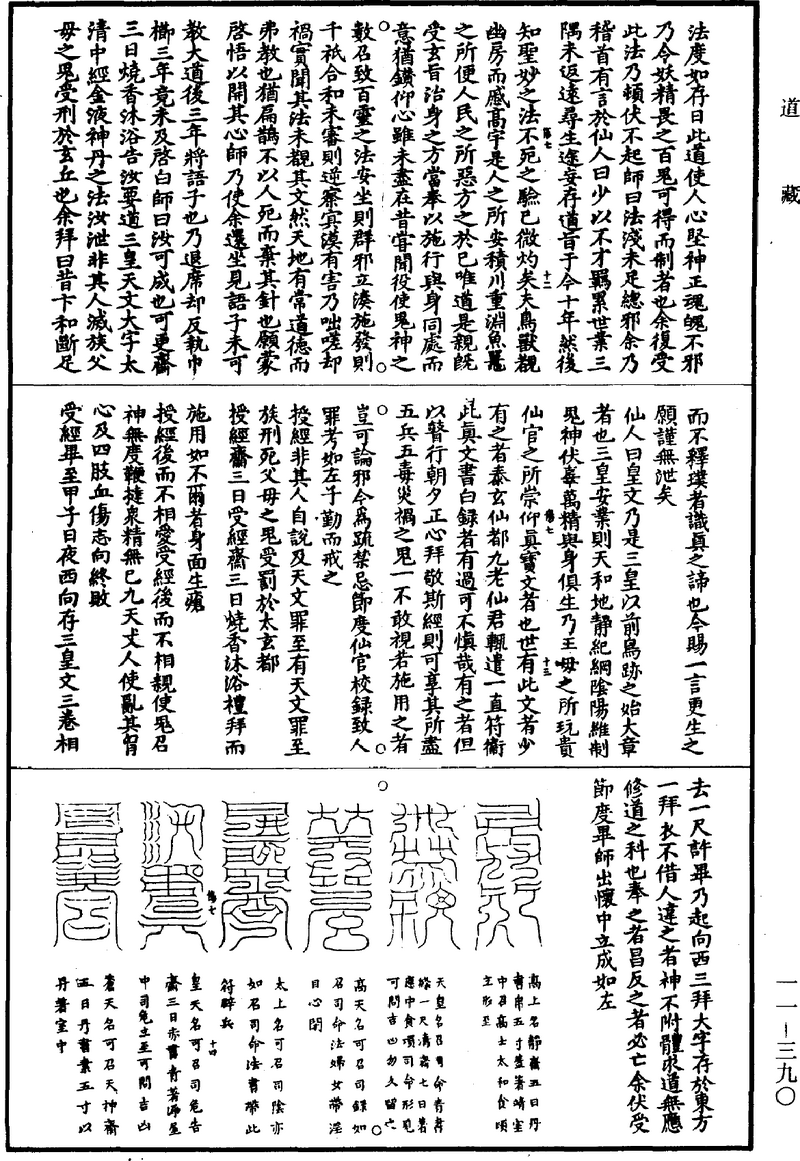 道藏
法度如存日此道使人心堅神正魂魄不邪
乃令妖精畏之百鬼可得而制者也余復受
此法乃頓伏不起師曰法淺未足總邪余乃
稽首有言於仙人曰少以不才羈累世業三
隅未返遠尋生途妄存道旨于今十年然後
知聖妙之法不死之驗已微灼矣夫鳥獸觀
幽房而慼高宇是人之所安積川重淵魚鼈
之所便人民之所惡方之於已唯道是親旣
受玄旨治身之方當奉以施行與身同處而
意猶鑽仰心雖未盡在昔嘗聞役使鬼神之
數召致百靈之法安坐則群邪立湊施發則
千祇合和未審則逆察冥漠有害乃咄嗟却
禍實聞其法未覩其文然天地有常道德而
弗教也猶扁鵲不以人死而棄其針也願蒙
啓悟以開其心師乃使余還坐見語子未可
教大道後三年將語子也乃退席却反執巾
櫛三年竟未及啓白師曰汝可成也可更齋
三日燒香沐浴告汝要道三皇天文大字太
清中經金液神丹之法汝泄非其人滅族父
母之鬼受刑於玄丘也余拜曰昔卞和斷足
而不釋璞者識真之諦也今賜一言更生之
願謹無泄矣
仙人曰皇文乃是三皇以前鳥跡之始大章
者也三皇安業則天和地靜紀綱陰陽維制
鬼神伏毒萬精與身俱生乃王母之所玩貴
仙官之所崇仰真寶文者也世有此文者少
有之者泰玄仙都九老仙君輒遣一直符衛
此真文書白録者有過可不慎哉有之者但
以瞽行朝夕正心拜敬斯經則可享其所盡
五兵五毒災禍之鬼一不敢視若施用之者
豈可論邪今爲疏禁忌節度仙官校録致人
罪考如左子勤而戒之
授經非其人自說及天文罪至有天文罪至
族刑死父母之鬼受罰於太玄都
授經齋三日受經齋三日燒香沐浴禮拜而
施用如不爾者身面生瘡
授經後而不相愛受經後而不相親使鬼召
神無度鞭撻衆精無已九天丈人使亂其胷
心及四肢血傷志向終敗
受經畢至甲子日夜西向存三皇文三卷相
去一尺許畢乃起向西三拜大字存於東方
一拜衣不借人違之者神不附體求道無應
修道之科也奉之者昌反之者必亡余伏受
節度畢師出懷中立成如左
高上名靜齋五日丹
書帛五寸盛著晴室
中召高士太和食頃
立形至
天皇名召司命青書
緣一尺清齋七日著
座中食頃司命形見
可問吉凶勿久留之
高天名可召司録如
召司命法婦女帶淫
日心開
太上名可召司陰亦
如召司命法書帶此
符辟兵
皇天名可召司危告
齋三日赤書青著淨屋
中司危立至可問吉凶
蒼天名可召天神齋
五日丹書素五寸以
丹著室中
一一—三九〇